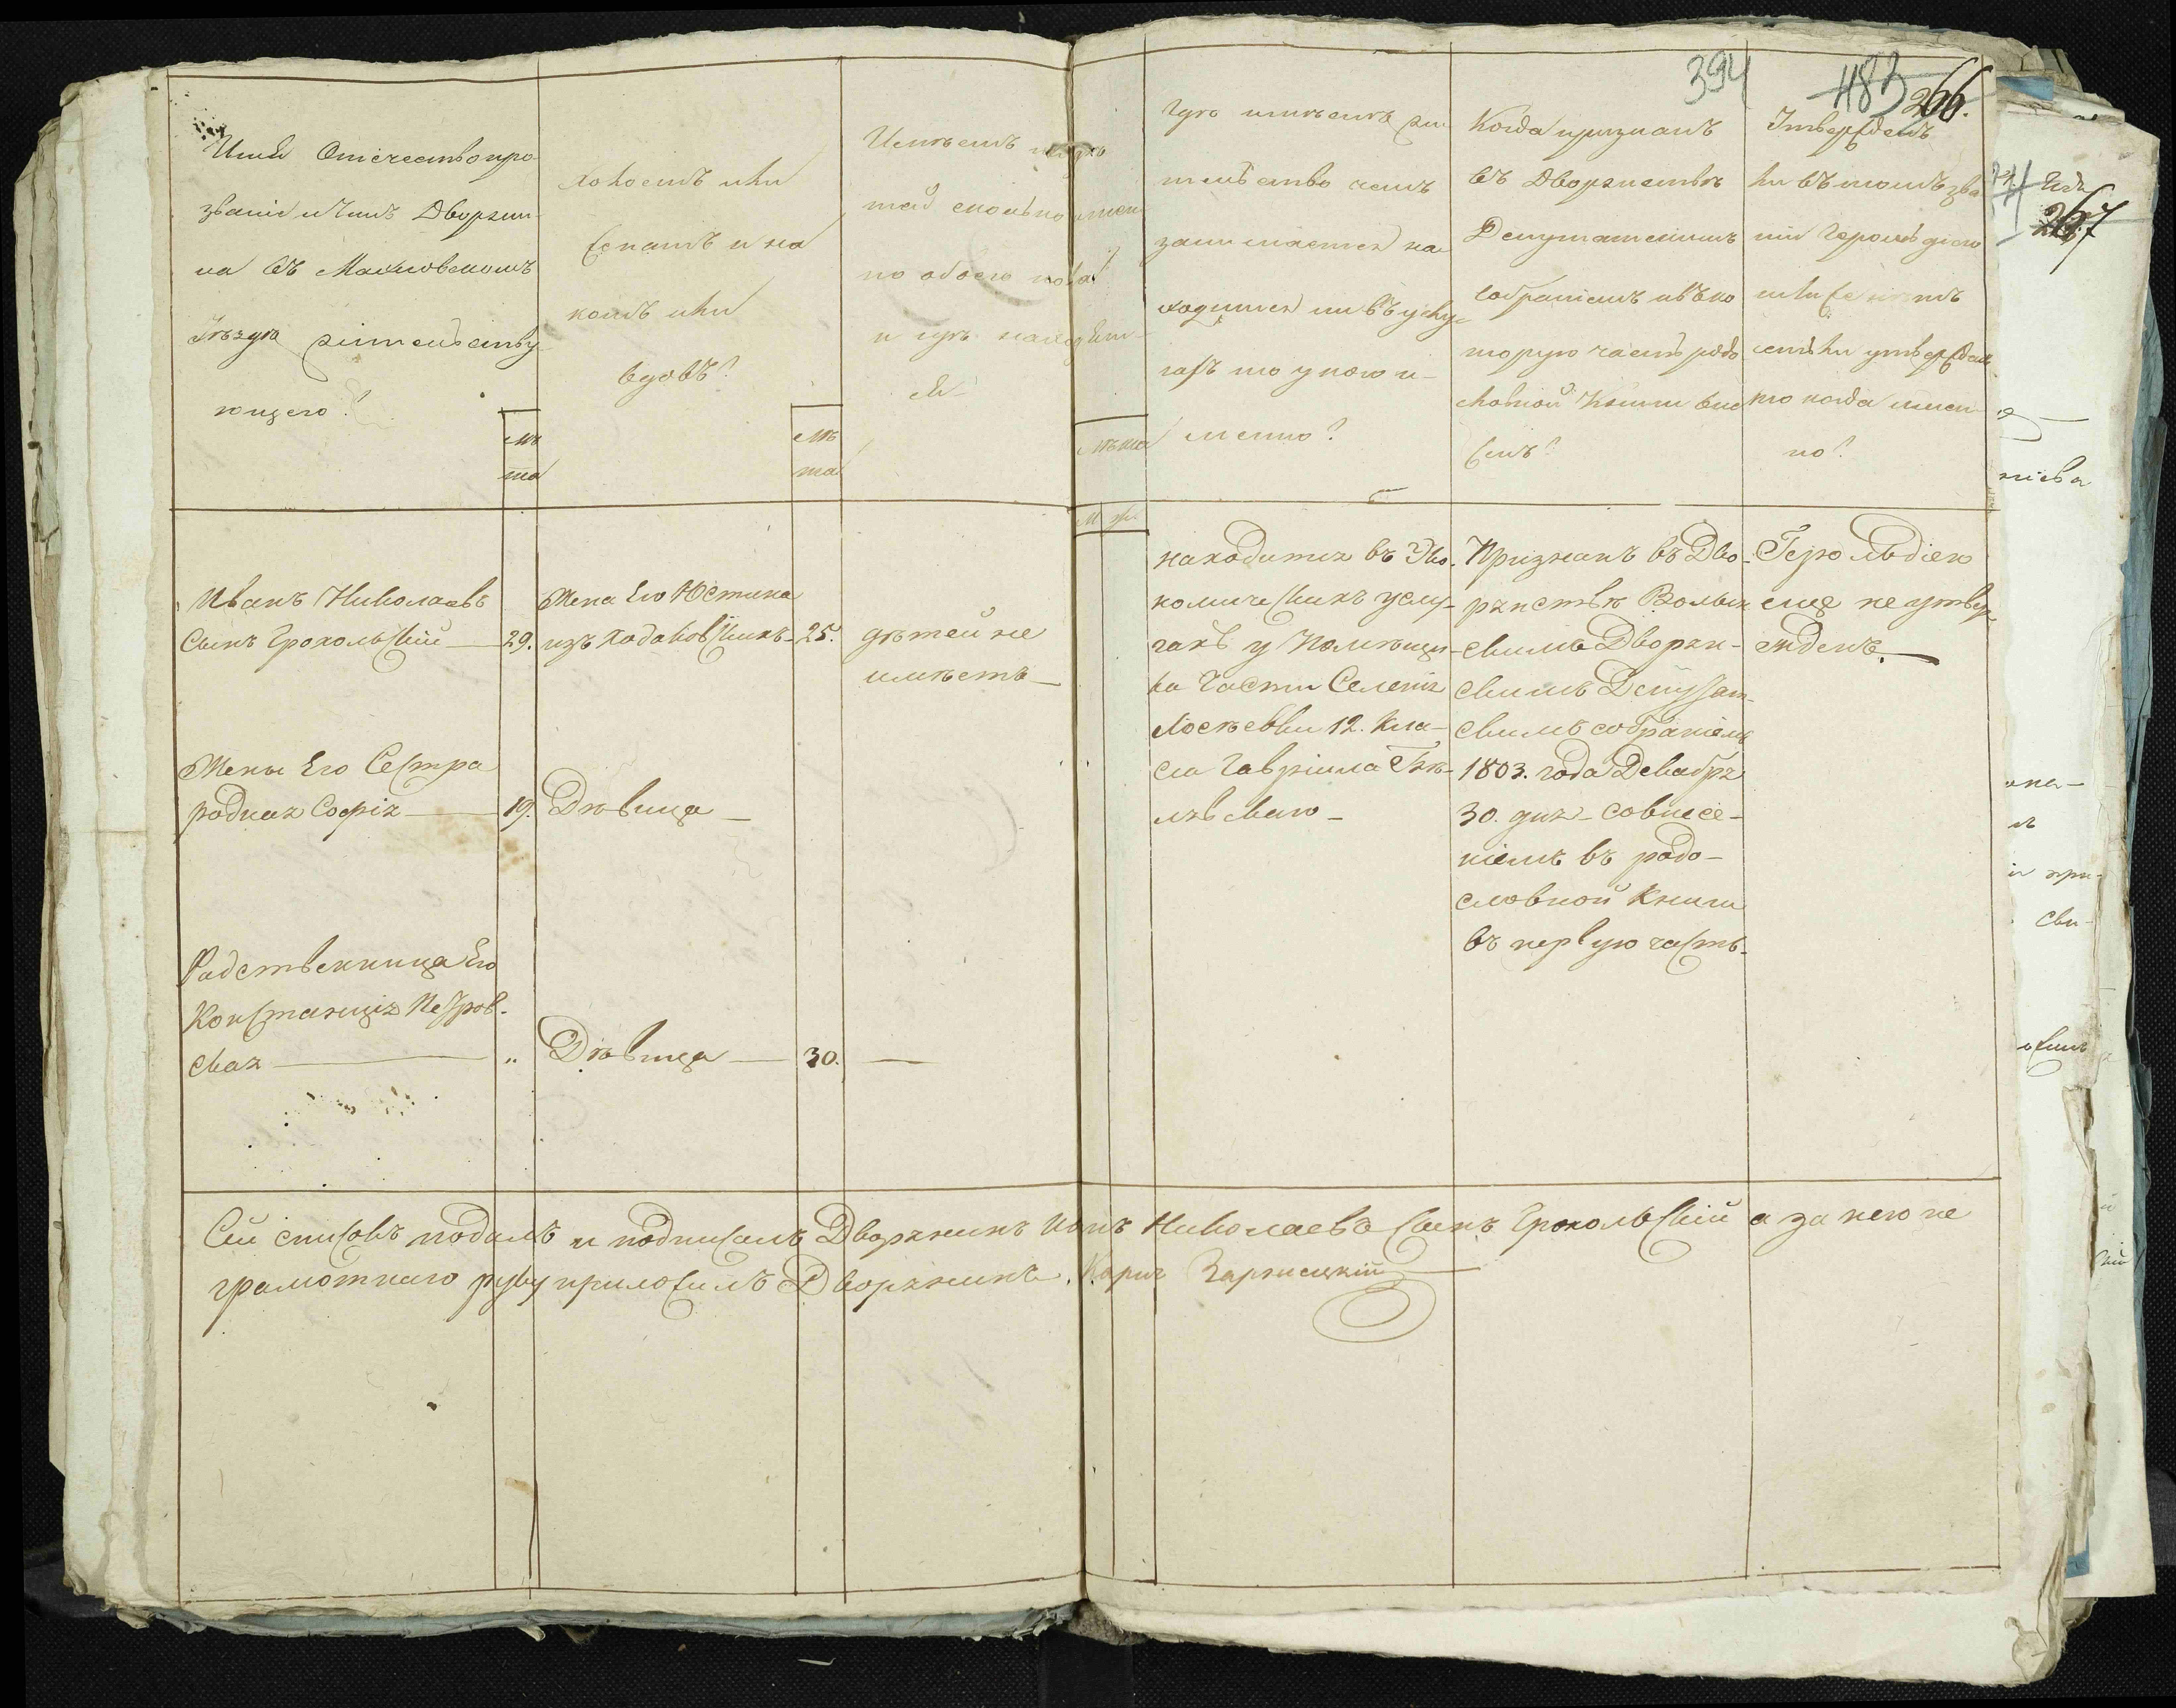 394
483 266.
Имя Отечество про-
званіе и чинъ Дворяни-
на въ Махновскомъ
Уѣздѣ жительству-
ющего?
лѣ
та
холостъ или
женатъ и на
комъ или
вдовъ?
лѣ
та
Имѣетъ
тей сколько имен
но обоего пола?
и гдѣ находят-
ся
лѣта
м ж
гдѣ имѣетъ жи
тельство чемъ
занимается на
ходится ли въ услу-
гахъ то у кого и-
менно?
Когда признанъ
въ Дворянствѣ
Депутатскимъ
собраніемъ въ ко
торую часть родо
словной Книги вне
сенъ?
Утвержденъ
ли въ томъ зва
ніи Герольдіею
или же нѣтъ
если утвержден
то когда имен-
но?
267
Иванъ Николаевъ
Сынъ Грохольскій — 29.
Жена Его Юстина
изъ Ходаковскихъ — 25.
дѣтей не
имѣетъ —
находится въ Эко-
комическихъ услу-
гахъ у Помѣщи-
ка Части Селенія
Лосѣевки 12. Кла-
са Гавріила
Признанъ въ Дво-
рянствѣ Волын
скимъ Дворян-
скимъ Депутат-
скимъ собраніемъ
1803. года Декабря
30. дня совнесе-
ніемъ въ родо-
словной Книги
въ первую часть.
Герольдіею
еще не утвер-
жденъ.
Жены Его Сестра
родная Софія — 19.
Дѣвица —
Родственница Его
Констанція Петров-
ская — „
Дѣвица — 30. —
Сей списокъ подалъ и подписалъ Дворянинъ Иванъ Николаевъ Сынъ Грохольскій а за него не
грамотнаго руку приложилъ Дворянинъ